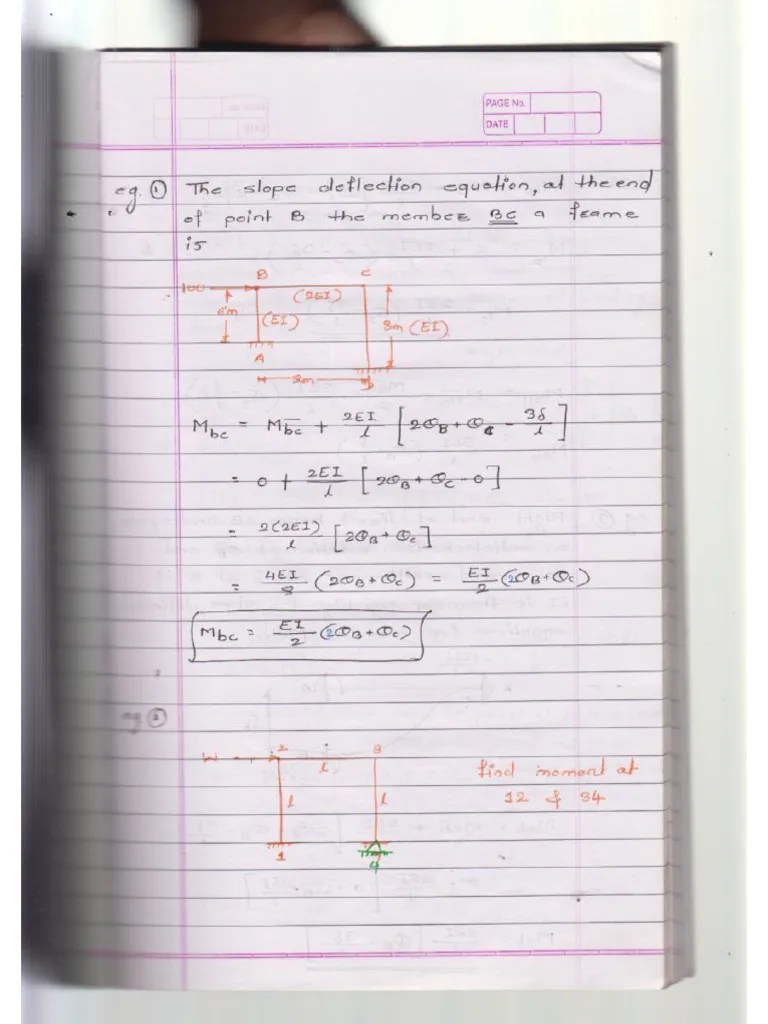 PAGE No.
DATE
eg. ① The slope deflection equation, at the end
of point B the member BC a frame
is
B C
100
(2EI)
6m (EI) 8m (EI)
A
8m D
Mbc = M̅bc + 2EI/l [2θB + θc - 3δ/l]
= 0 + 2EI/l [2θB + θc - 0]
= 2(2EI)/l [2θB + θc]
= 4EI/8 (2θB + θc) = EI/2 (2θB + θc)
Mbc = EI/2 (2θB + θc)
eg ②
W 2 3
l
l l
1 4
find moment at
12 & 34